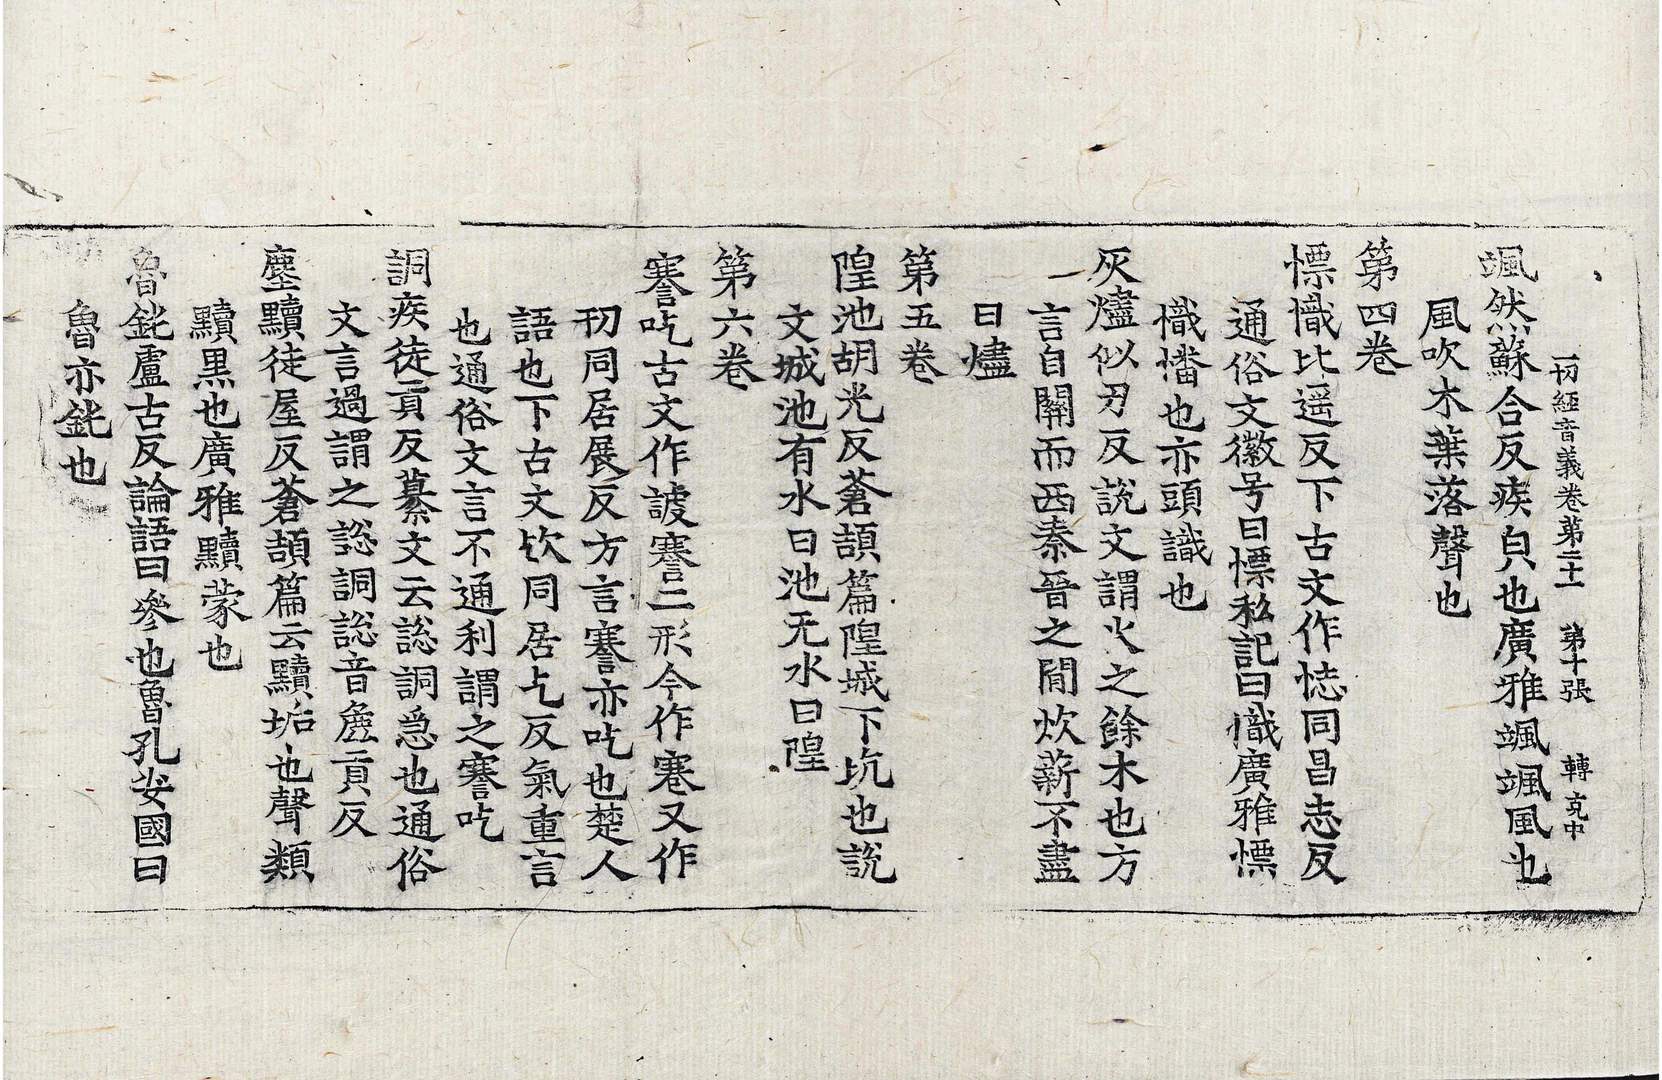 一切經音義卷第二十一 第十張 轉 克中
颯然蘇合反疾皃也廣雅颯颯風也
風吹木葉落聲也
第四卷
慓幟比遥反下古文作恷同昌志反
通俗文徽号曰慓私記曰幟廣雅慓
幟幡也亦頭識也
灰燼似刃反說文謂火之餘木也方
言自關而西秦晉之閒炊薪不盡
曰燼
第五卷
隍池胡光反蒼頡篇隍城下坑也說
文城池有水曰池无水曰隍
第六卷
謇吃古文作䛓謇二形今作蹇又作
㓞同居展反方言謇亦吃也楚人
語也下古文㰟同居乞反氣重言
也通俗文言不通利謂之謇吃
詷疾徒貢反纂文云謥詷急也通俗
文言過謂之謥詷謥音麁貢反
塵黷徒屋反蒼頡篇云黷垢也聲類
黷黒也廣雅黷蒙也
魯鈍盧古反論語曰參也魯孔安國曰
魯亦鈍也